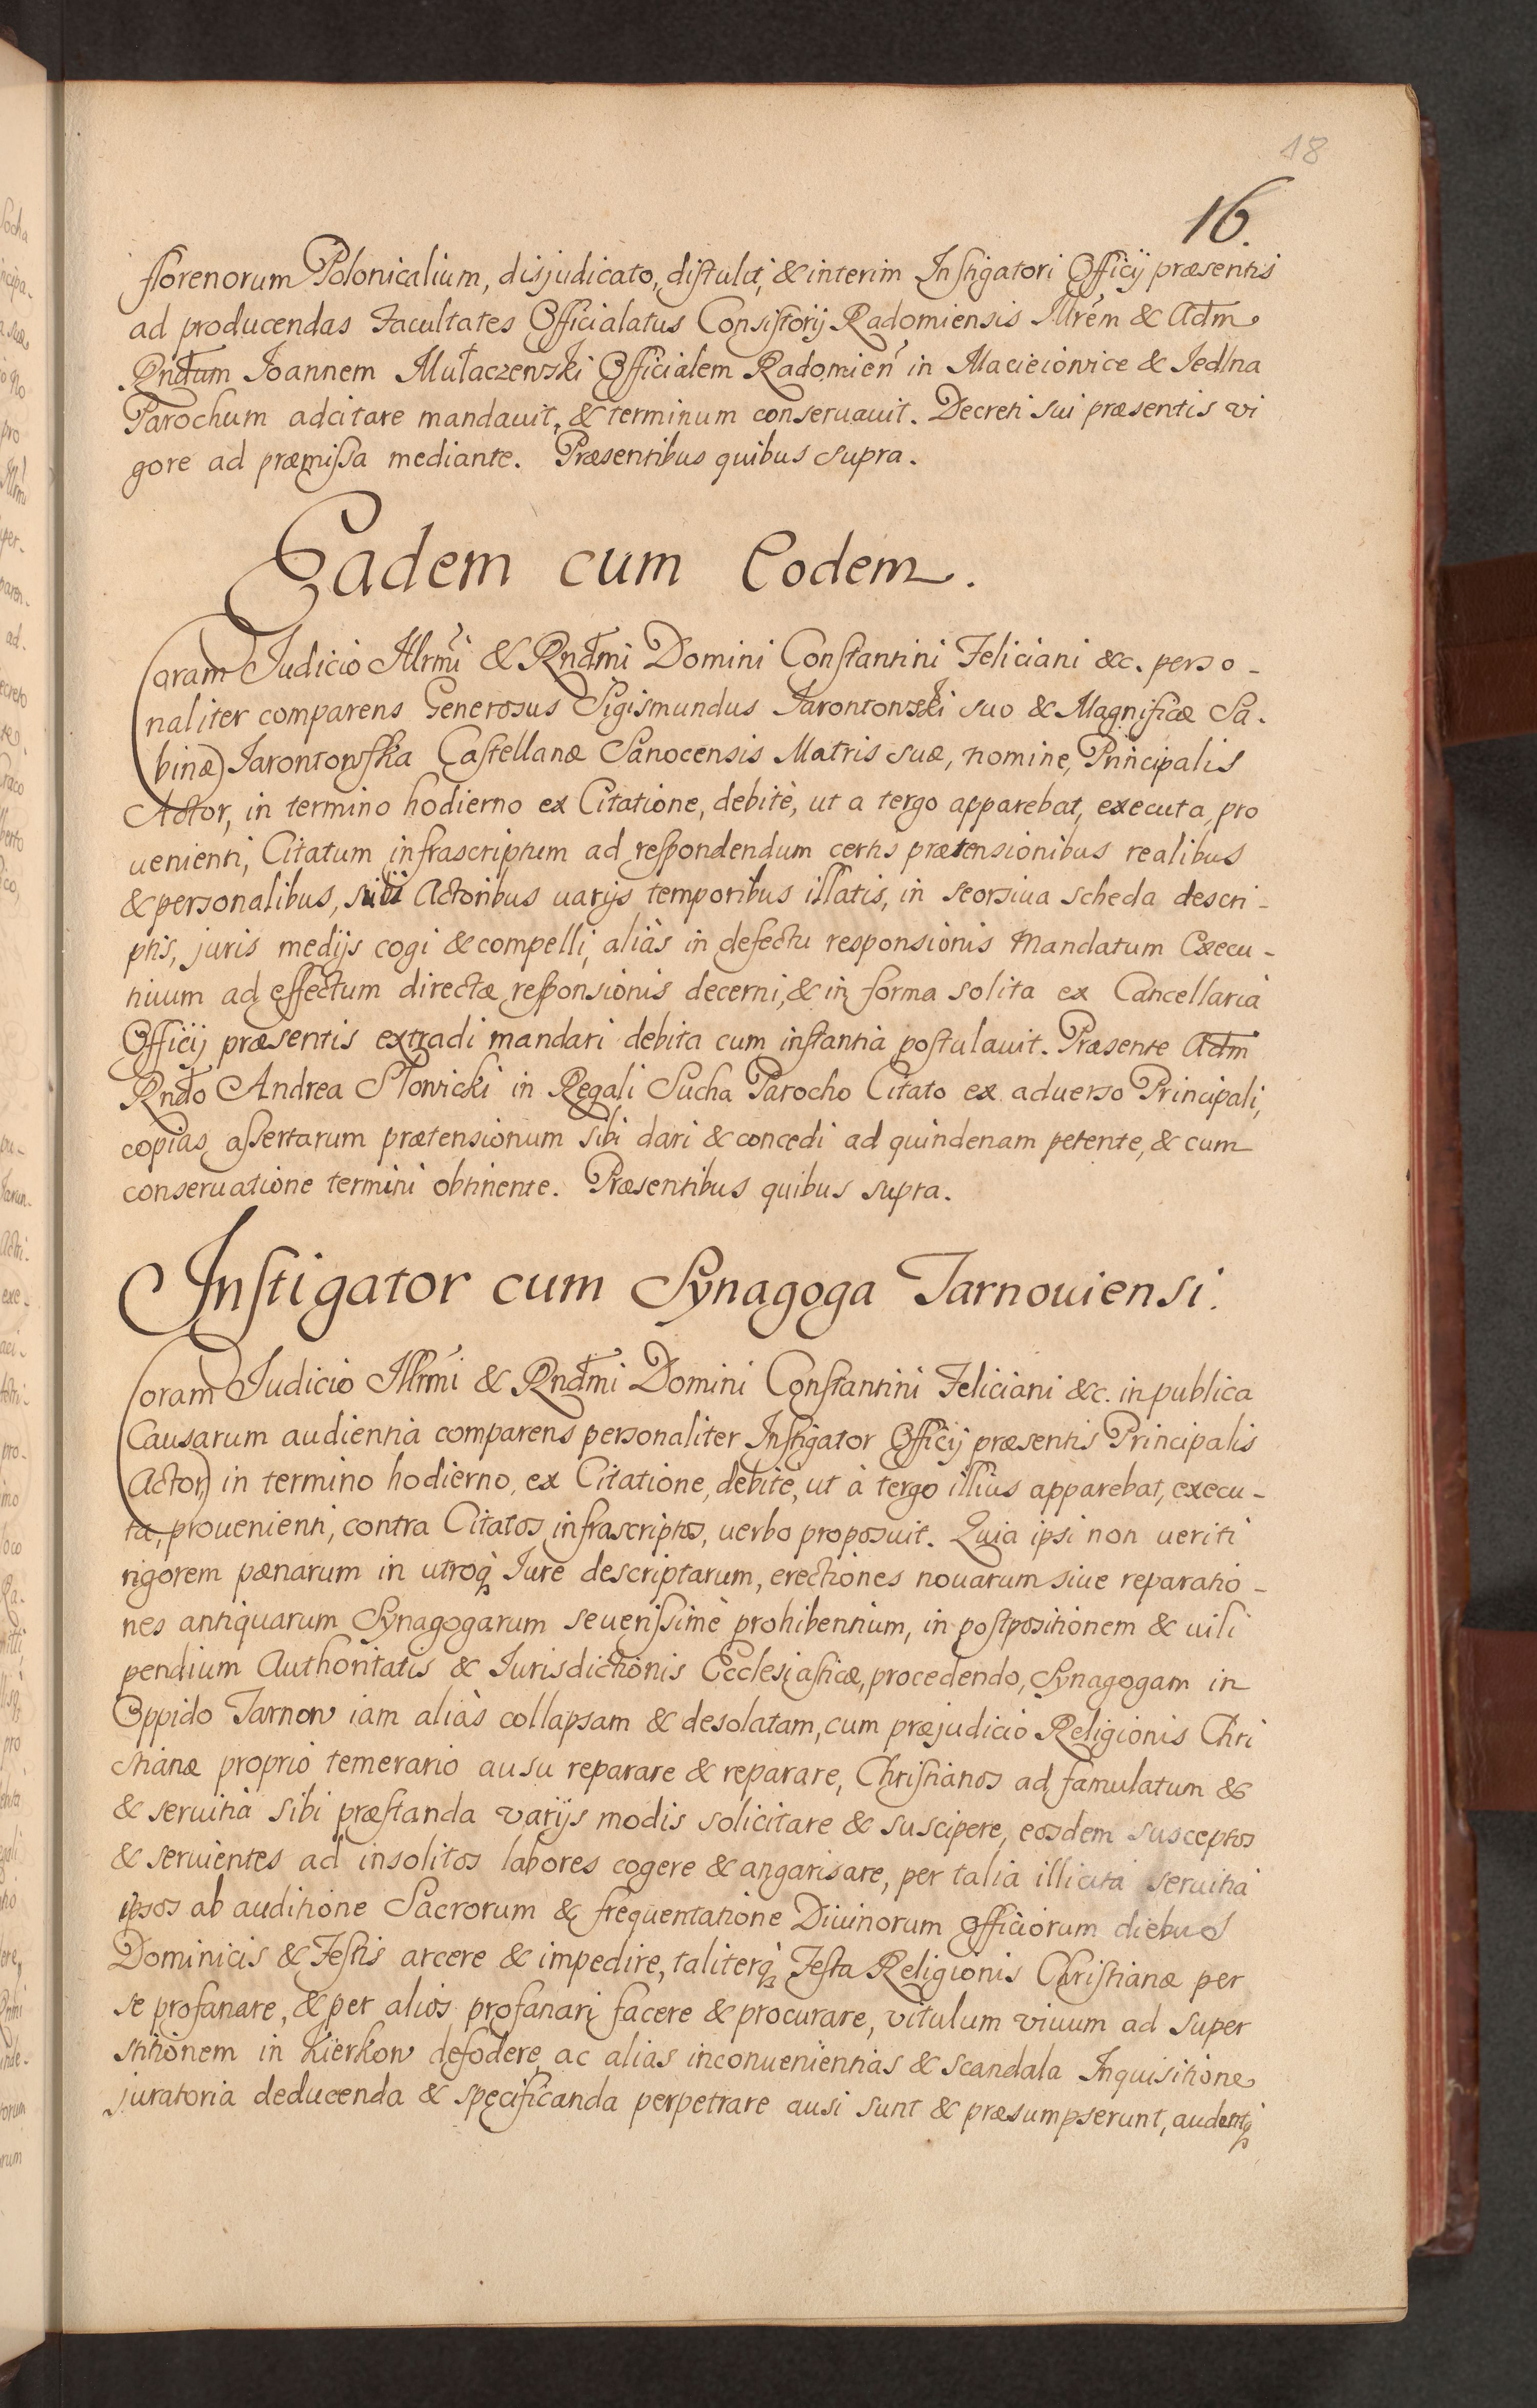 18
16.
florenorum Polonicalium, disjudicato, distulit, & interim Instigatori Officij præsentis
ad producendas Facultates Officialatus Consistorij Radomiensis Illrem & Adm
Rndum Ioannem Mułaczewski Officialem Radomien in Macieiowice & Iedlna
Parochum adcitare mandauit, & terminum conseruauit. Decreti sui præsentis vi
gore ad præmissa mediante. Præsentibus quibus supra.
Eadem cum Eodem.
Coram Iudicio Illrmi & Rndmi Domini Constantini Feliciani &c. perso-
naliter comparens Generosus Sigismundus Iarontowski suo & Magnificæ Sa-
binæ Iarontowska Castellanæ Sanocensis Matris suæ, nomine, Principalis
Actor, in termino hodierno ex Citatione, debitè, ut a tergo apparebat, executa, pro
uenienti, Citatum infrascriptum ad respondendum certis prætensionibus realibus
& personalibus, suis Actoribus uarijs temporibus illatis, in seorsiua scheda descri-
ptis, juris medijs cogi & compelli, aliàs in defectu responsionis Mandatum Execu-
tiuum ad effectum directæ responsionis decerni, & in forma solita ex Cancellaria
Officij præsentis extradi mandari debita cum instantia postulauit. Præsente Adm
Rndo Andrea Słowicki in Regali Sucha Parocho Citato ex aduerso Principali,
copias assertarum prætensionum sibi dari & concedi ad quindenam petente, & cum
conseruatione termini obtinente. Præsentibus quibus supra.
Instigator cum Synagoga Tarnouiensi.
Coram Iudicio Illrmi & Rndmi Domini Constantini Feliciani &c. in publica
Causarum audientia comparens personaliter Instigator Officij præsentis Principalis
Actor, in termino hodierno, ex Citatione, debitè, ut à tergo illius apparebat, execu-
ta, prouenienti, contra Citatos infrascriptos, uerbo proposuit. Quia ipsi non ueriti
rigorem pænarum in utroq Iure descriptarum, erectiones nouarum siue reparatio-
nes antiquarum Synagogarum seuerissimè prohibentium, in postpositionem & uili
pendium Authoritatis & Iurisdictionis Ecclesiasticæ, procedendo, Synagogam in
Oppido Tarnow iam aliàs collapsam & desolatam, cum præjudicio Religionis Chri
stianæ proprio temerario ausu reparare & reparare, Christianos ad famulatum &
& seruitia sibi præstanda varijs modis solicitare & suscipere, eosdem susceptos
& seruientes ad insolitos labores cogere & angarisare, per talia illicita seruitia
ipsos ab auditione Sacrorum & frequentatione Diuinorum officiorum diebus
Dominicis & Festis arcere & impedire, taliterq Festa Religionis Christianæ per
se profanare, & per alios profanari facere & procurare, vitulum viuum ad super
stitionem in Kierkow defodere, ac alias inconuenientias & scandala Inquisitione
juratoria deducenda & specificanda perpetrare ausi sunt & præsumpserunt, audentq